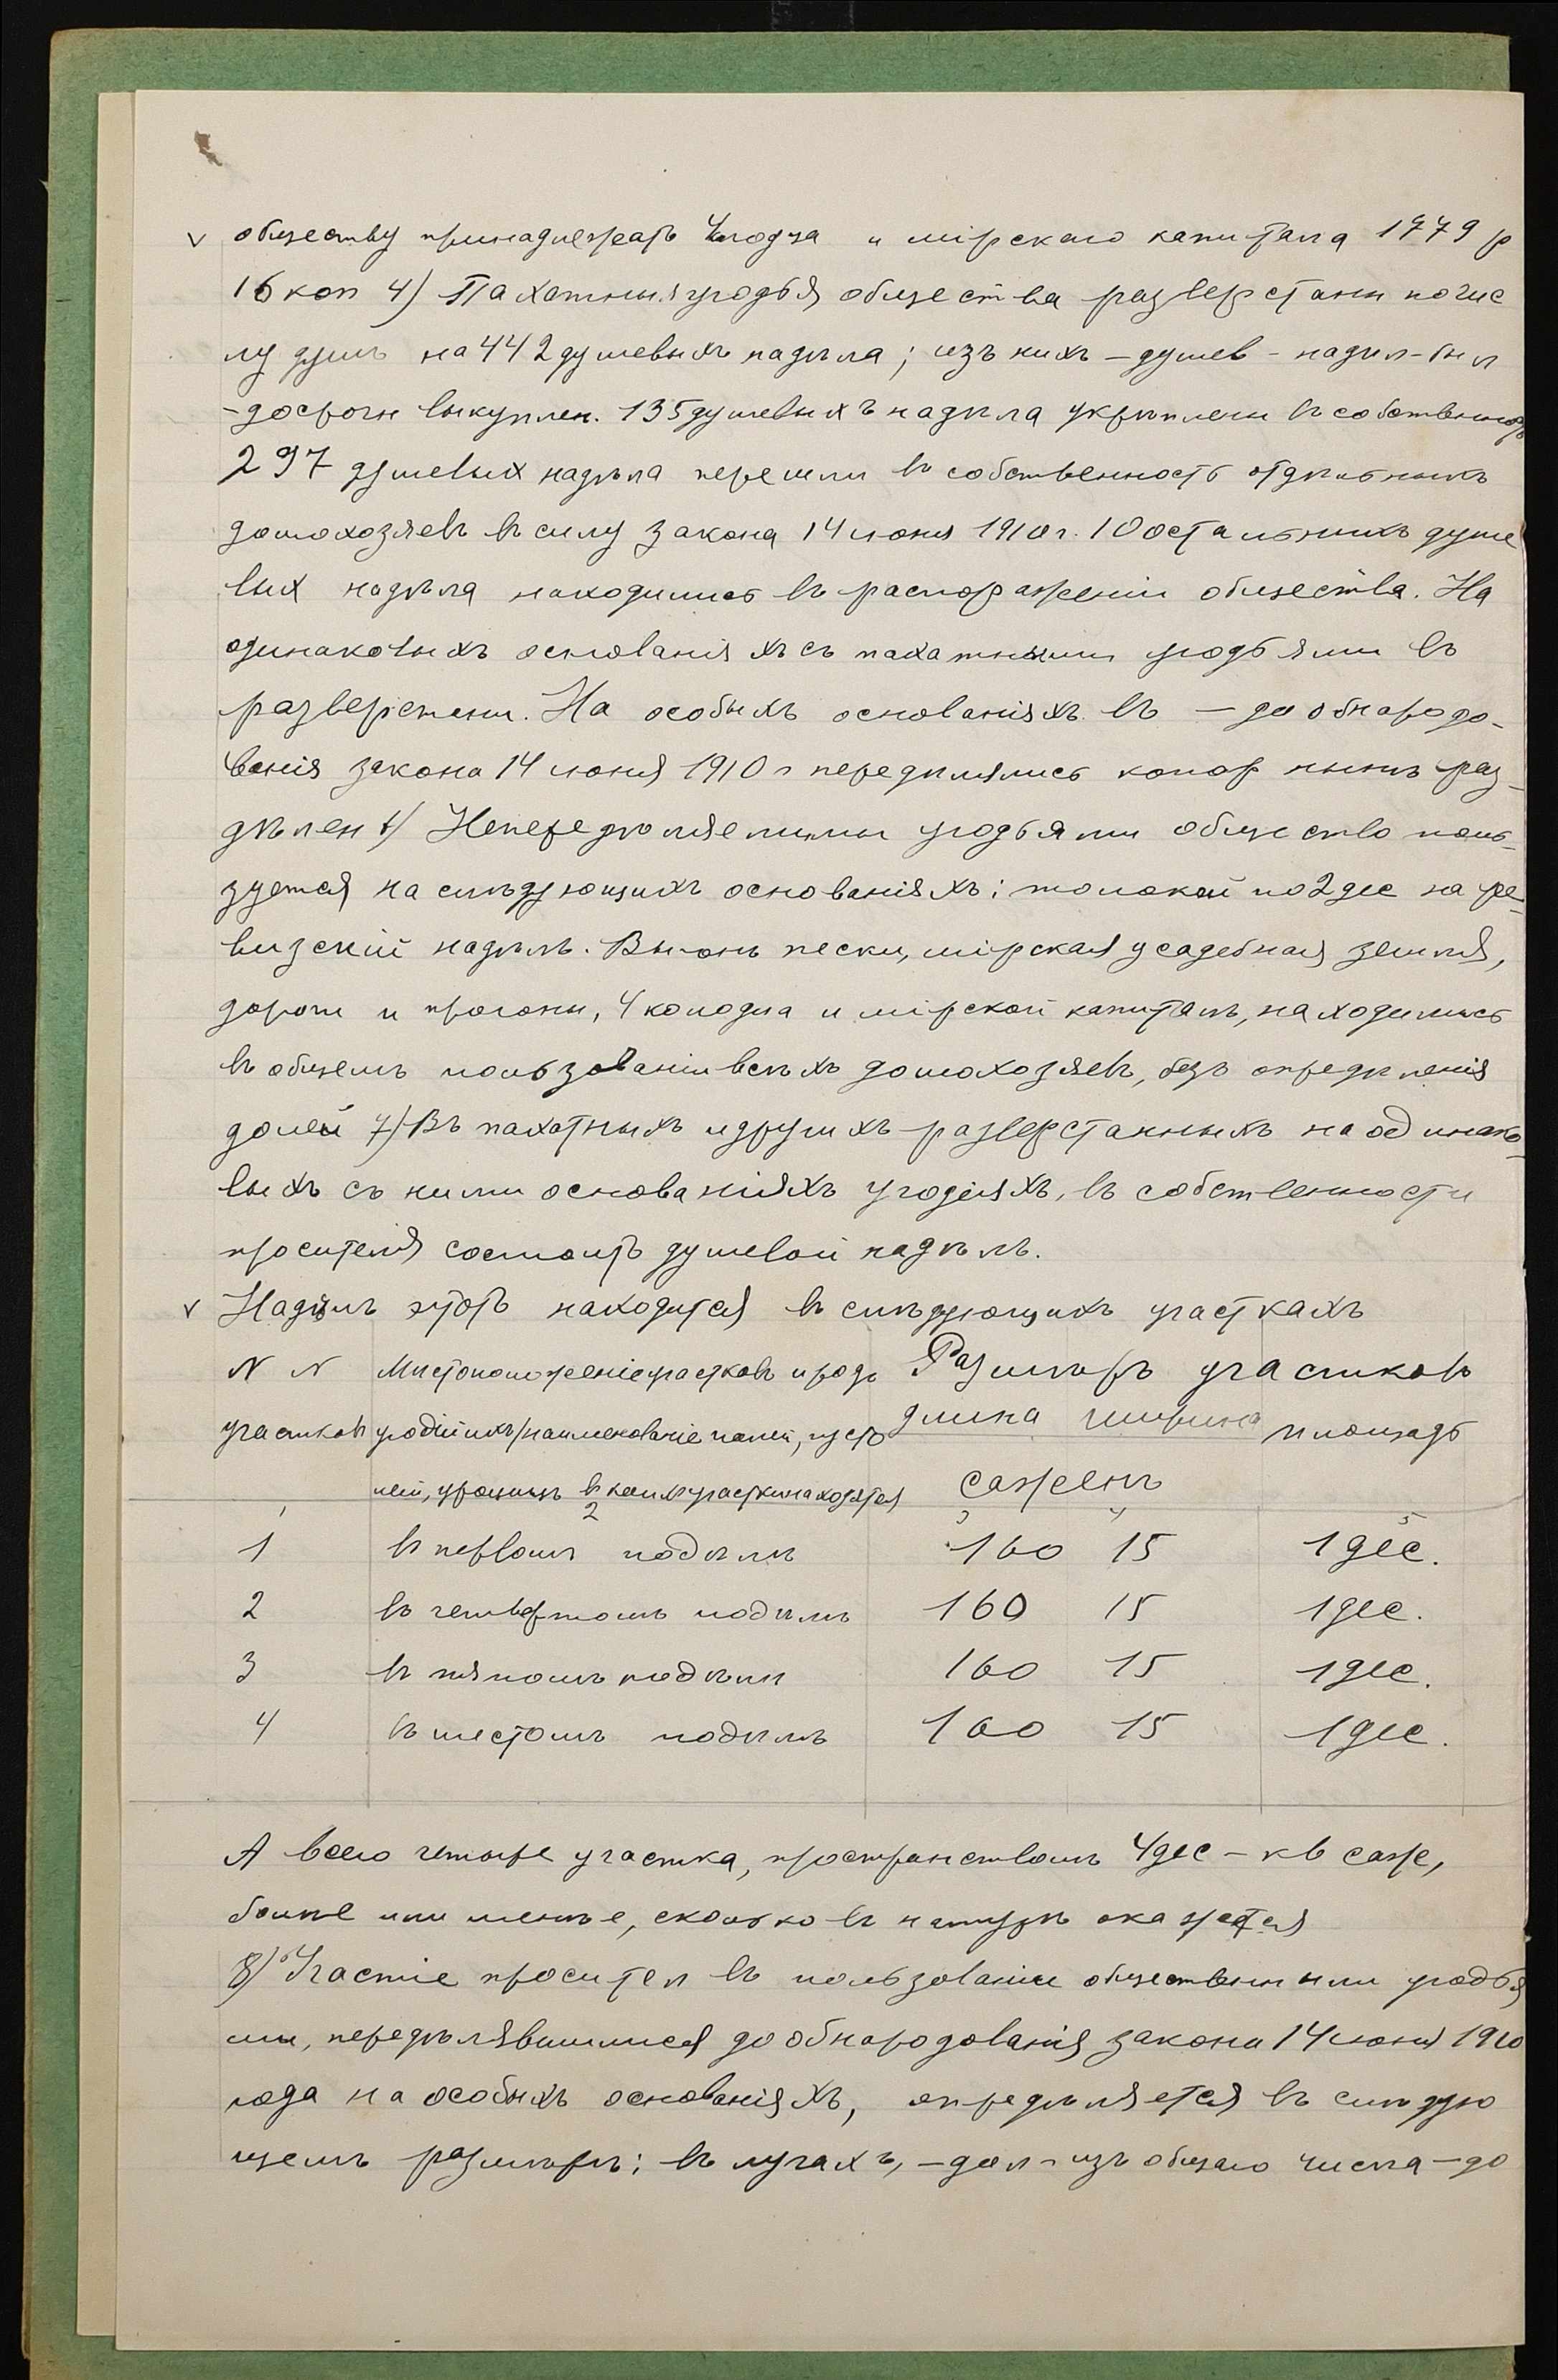 обществу принадлежатъ 4 колодца и мірского капитала 1979 р
16 коп 4) Пахотныя угодья общества разверстаны по чис
лу душъ на 442 душевыхъ надѣла; изъ нихъ – душев – надѣл – был
– досрочн выкуплен. 135 душевыхъ надѣла укрѣплены въ собственность
297 душевых надѣла перешли въ собственность отдѣльныхъ
домохозяевъ въ силу закона 14 іюня 1910 г. 10 остальныхъ душе
вых надѣла находились въ распоряженіи общества. На
одинаковыхъ основаніяхъ съ пахатными угодьями въ
разверстаны. На особыхъ основаніяхъ въ – до обнародо-
ванія закона 14 іюня 1910 г передѣлялись котор нынѣ раз-
дѣлен 6) Непередѣляемыми угодьями общество поль-
зуется на слѣдующихъ основаніяхъ: толокой по 2 дес на ре-
визскій надѣлъ. Выгонъ пески, мірская усадебная земля,
дороги и прогоны, 4 колодца и мірской капиталъ, находились
въ общемъ пользованіи всѣхъ домохозяевъ, безъ опредѣленія
долей 7) Въ пахотныхъ и другихъ разверстанныхъ на одинако-
выхъ съ ними основаніяхъ угодіяхъ, въ собственности
просителя состоитъ душевой надѣлъ.
Надѣлъ этотъ находится въ слѣдующихъ участкахъ
N N Мѣстоположеніе участковъ и родъ Размѣръ участковъ
участковъ угодій ихъ/наименованіе полей, пусто длина ширина площадь
шей, урочищъ въ коихъ участки находятся саженъ
1 2 3 4 5
1 въ первомъ подѣлѣ 160 15 1 дес.
2 въ четвертомъ подѣлѣ 160 15 1 дес.
3 въ пятомъ подѣлѣ 160 15 1 дес.
4 въ шестомъ подѣлѣ 160 15 1 дес.
А всего четыре участка, пространствомъ 4 дес – кв саже,
болѣе или менѣе, сколько въ натурѣ окажется
8) Участіе просител въ пользованіи общественными угодья
ми, передѣлявшимися до обнародованія закона 14 іюня 1910
года на особыхъ основаніяхъ, опредѣляется въ слѣдую
щемъ размѣрѣ: въ лугахъ, – дол – изъ общаго числа – до